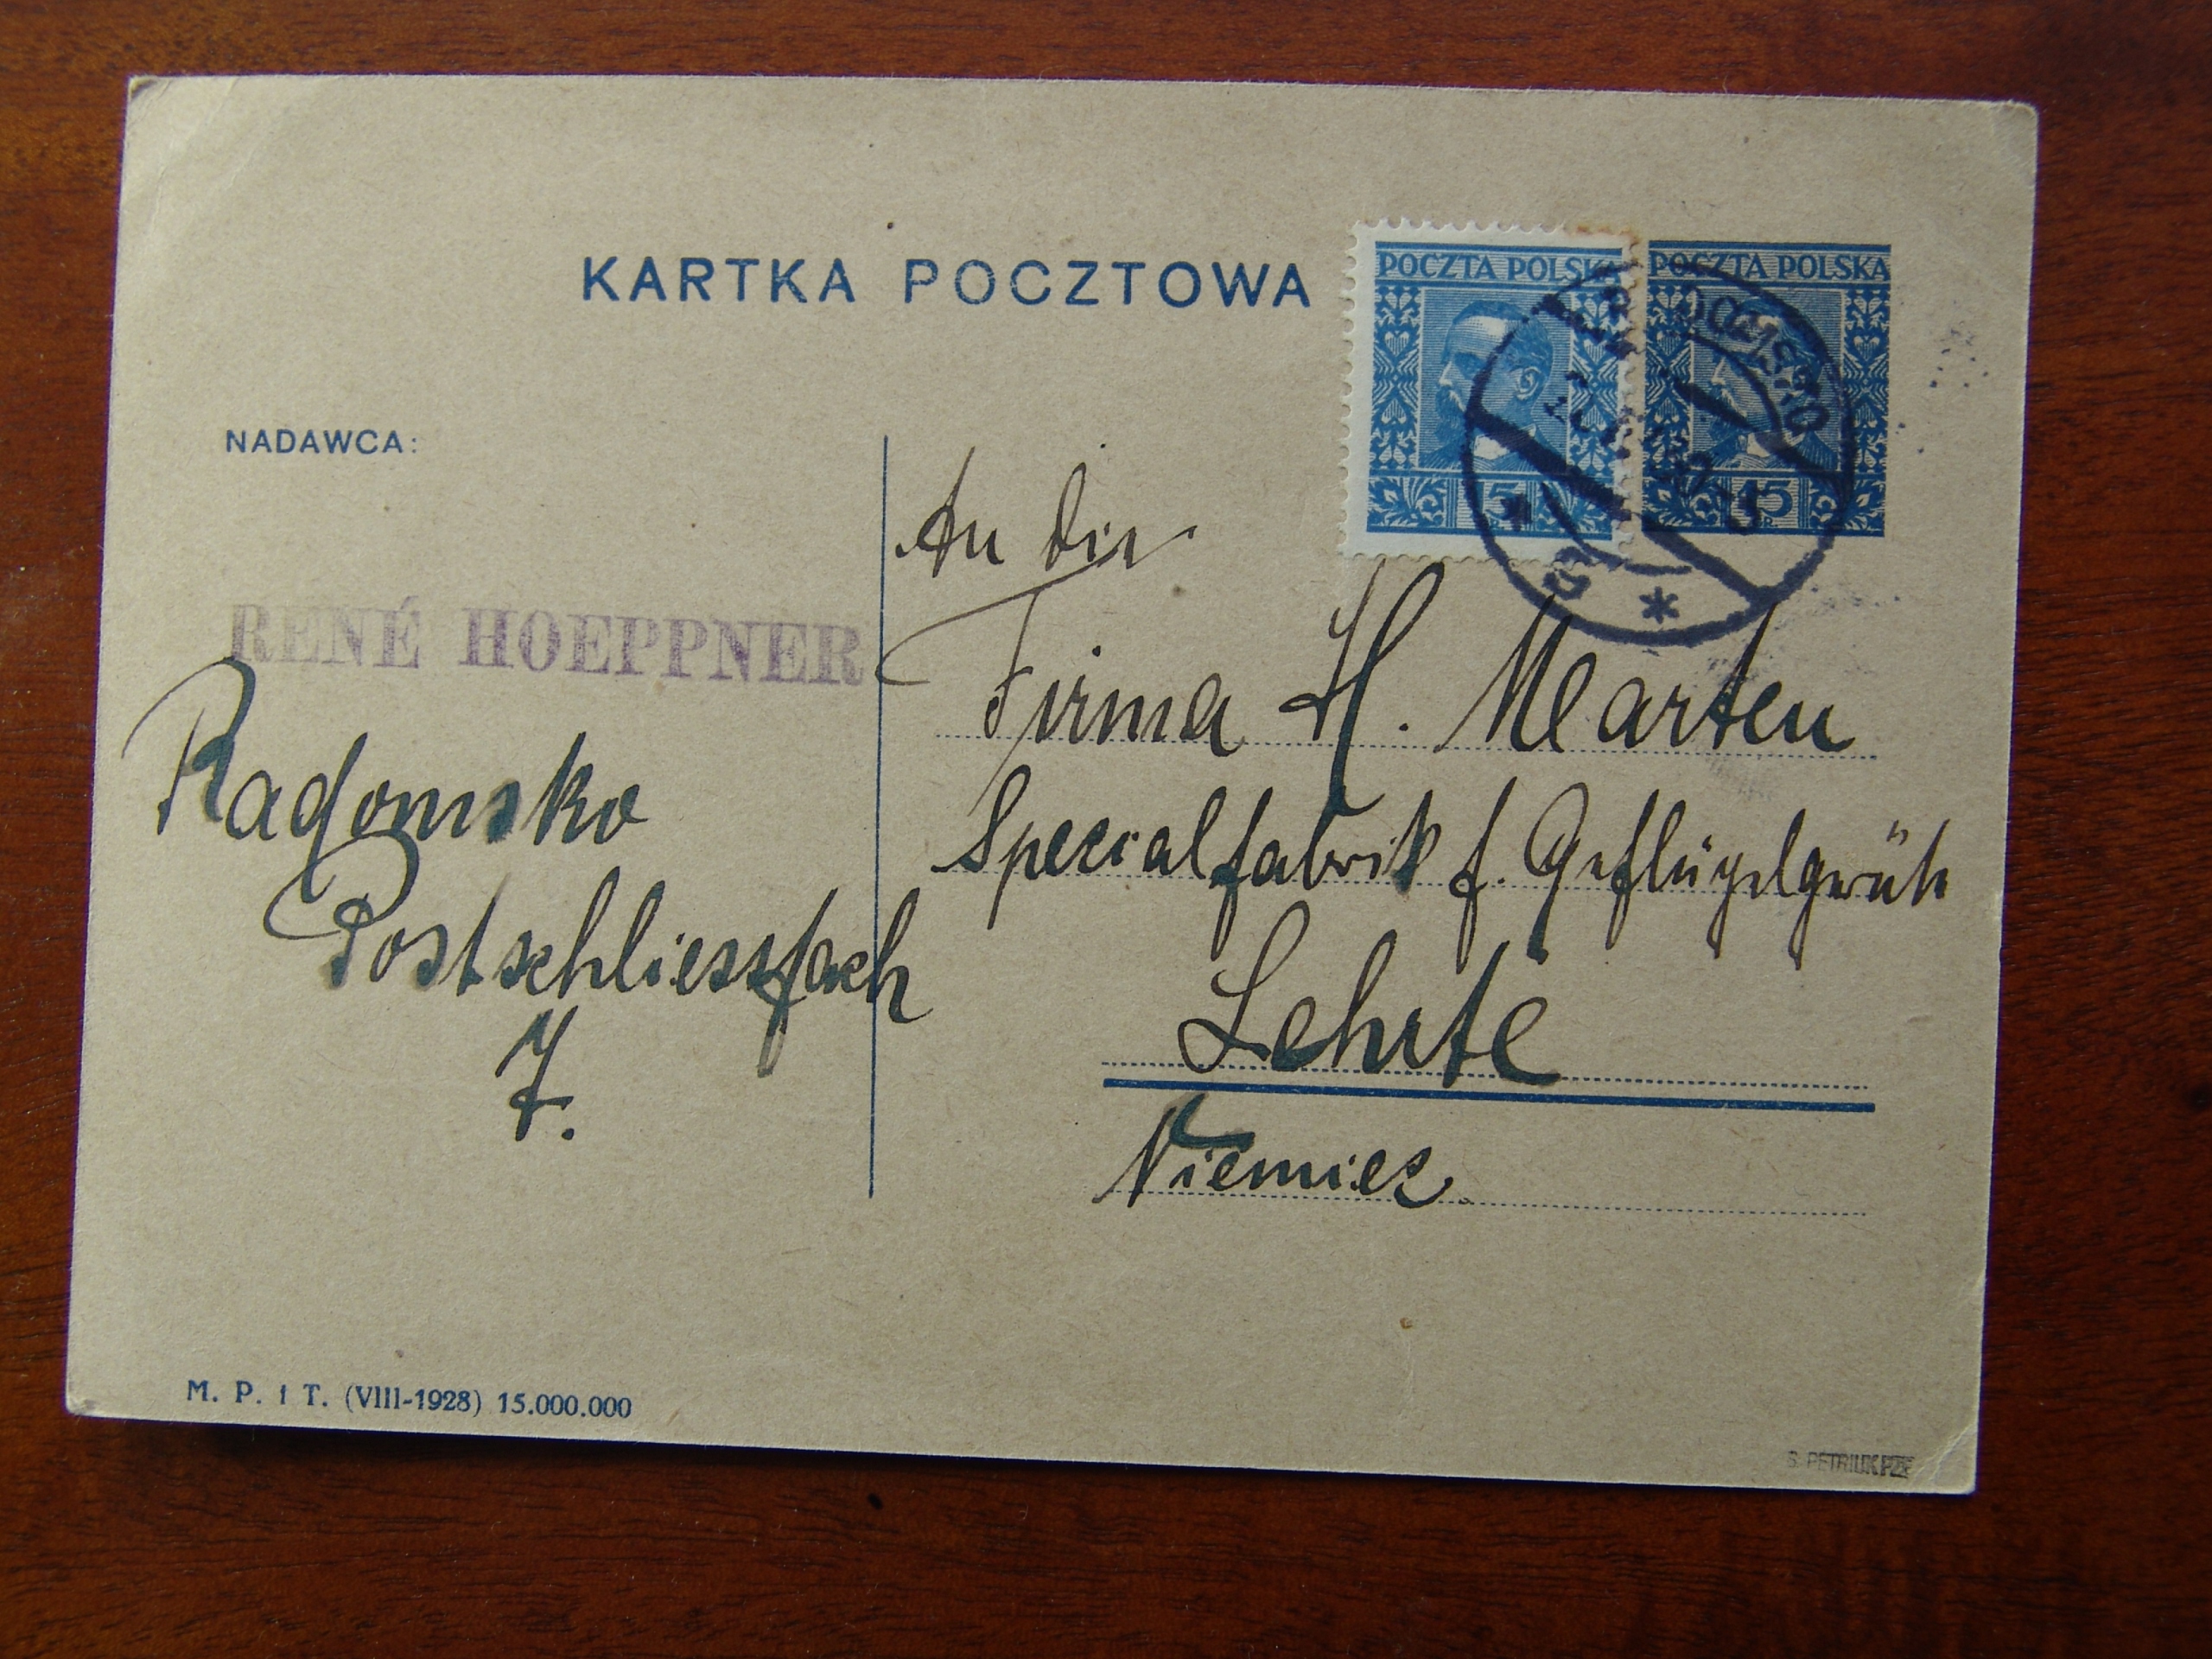 KARTKA POCZTOWA
POCZTA POLSKA
POCZTA POLSKA
15
NADAWCA:
RENÉ HOEPPNER
Radomsko
Postschliessfach
7.
An die
Firma H. Marten
Specialfabrik f. Geflügelgeräte
Lehrte
Niemiec
M. P. i T. (VIII-1928) 15.000.000
S. PETRIUK PZF